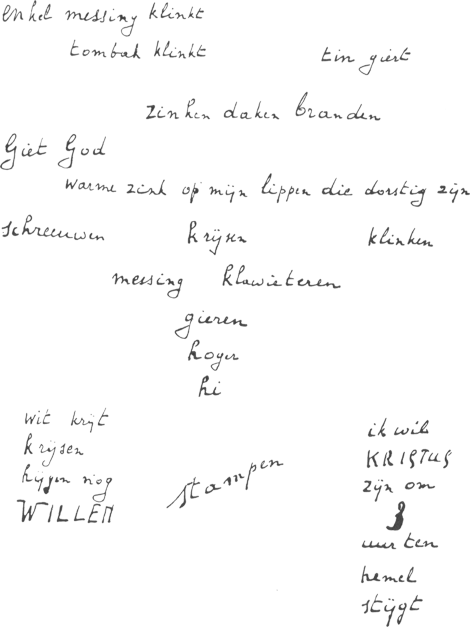 enkel messing klinkt
tombak klinkt tin giert
zinken daken branden
Giet God
warme zink op mijn lippen die dorstig zijn
schreeuwen krijsen klinken
messing klawieteren
gieren
hoger
hi
wit krijt
krijsen
hijgen nog
WILLEN
stampen
ik wil
KRISTUS
zijn om
3
uur ten
hemel
stijgt